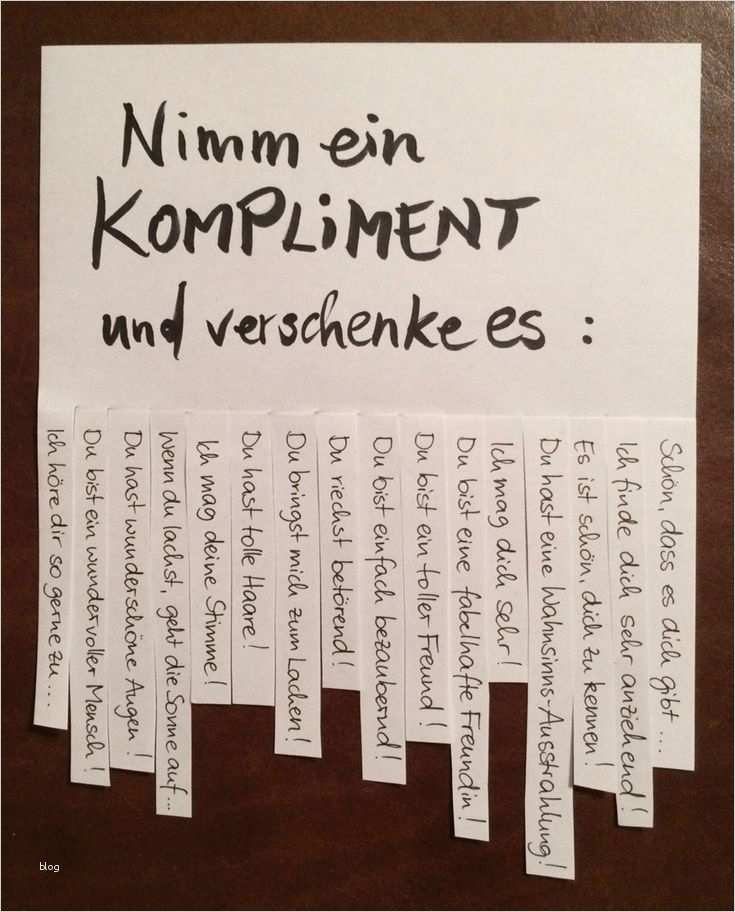 Nimm ein
KOMPLiMENT
und verschenke es :
Ich höre dir so gerne zu...
Du bist ein wundervoller Mensch!
Du hast wunderschöne Augen!
Wenn du lachst, geht die Sonne auf...
Ich mag deine Stimme!
Du hast tolle Haare!
Du bringst mich zum Lachen!
Du riechst betörend!
Du bist einfach bezaubernd!
Du bist ein toller Freund!
Du bist eine fabelhafte Freundin!
Ich mag dich sehr!
Du hast eine Wahnsinns-Ausstrahlung!
Es ist schön, dich zu kennen!
Ich finde dich sehr anziehend!
Schön, dass es dich gibt...
blog